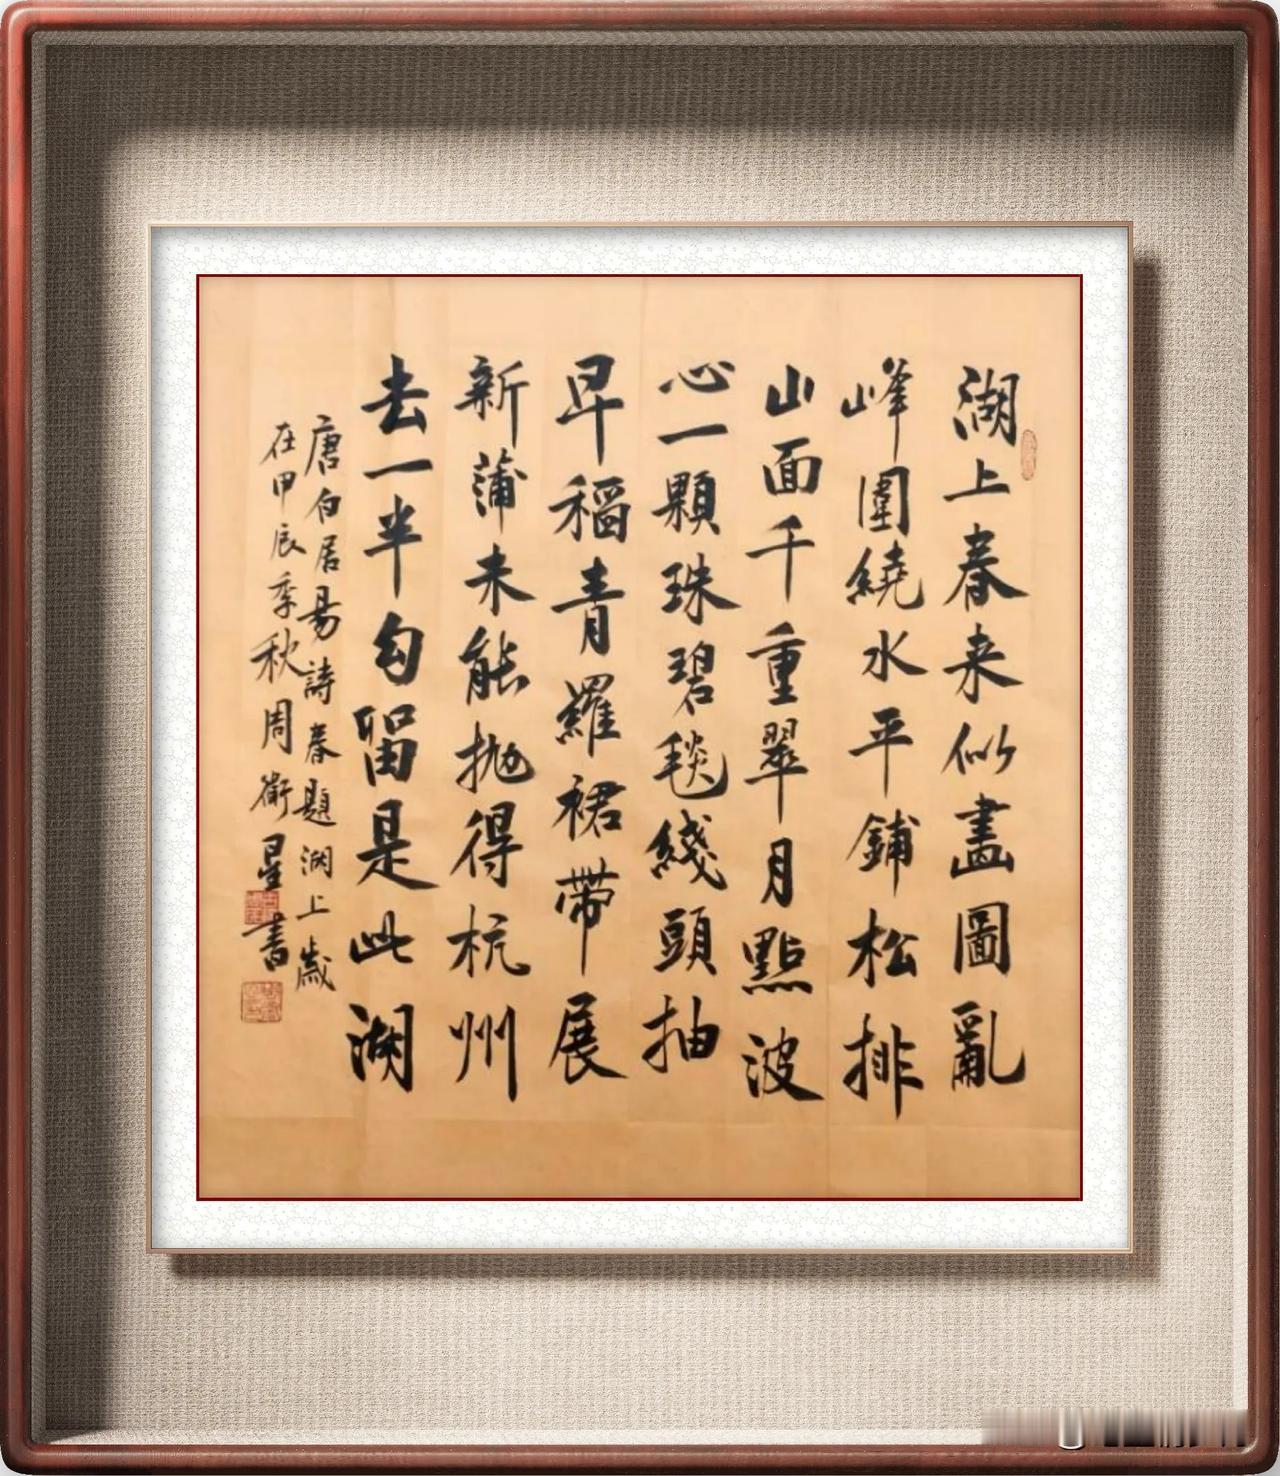 湖上春来似畫圖亂
峰圍繞水平鋪松排
山面千重翠月點波
心一顆珠碧毯綫頭抽
早稻青羅裙帶展
新蒲未能抛得杭州
去一半勾留是此湖
唐白居易詩春題湖上歲
在甲辰季秋周衛星書